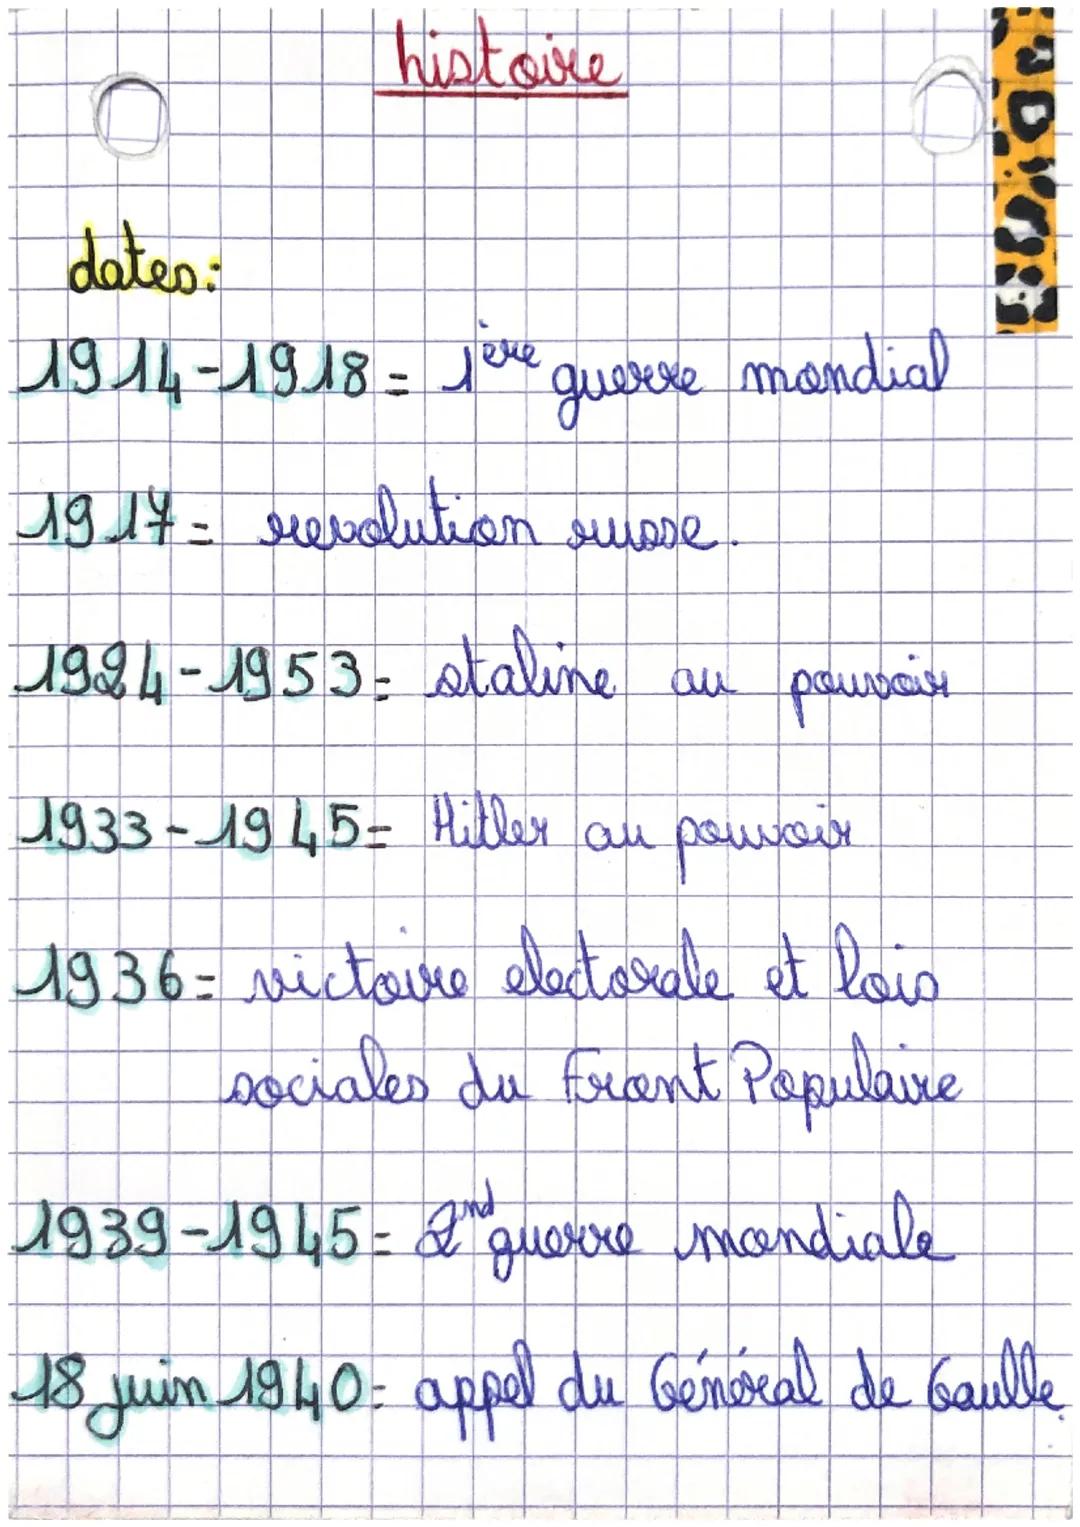 histoire
dates:
1914-1918 = 1ère guerre mondial
1917 = revolution russe.
1924-1953 = staline au pouvoir
1933-1945 = Hitler au pouvoir
1936 = victoire electorale et lois
sociales du Front Populaire
1939-1945 = 2nd guerre mondiale
18 juin 1940 = appel du Général de Gaulle.